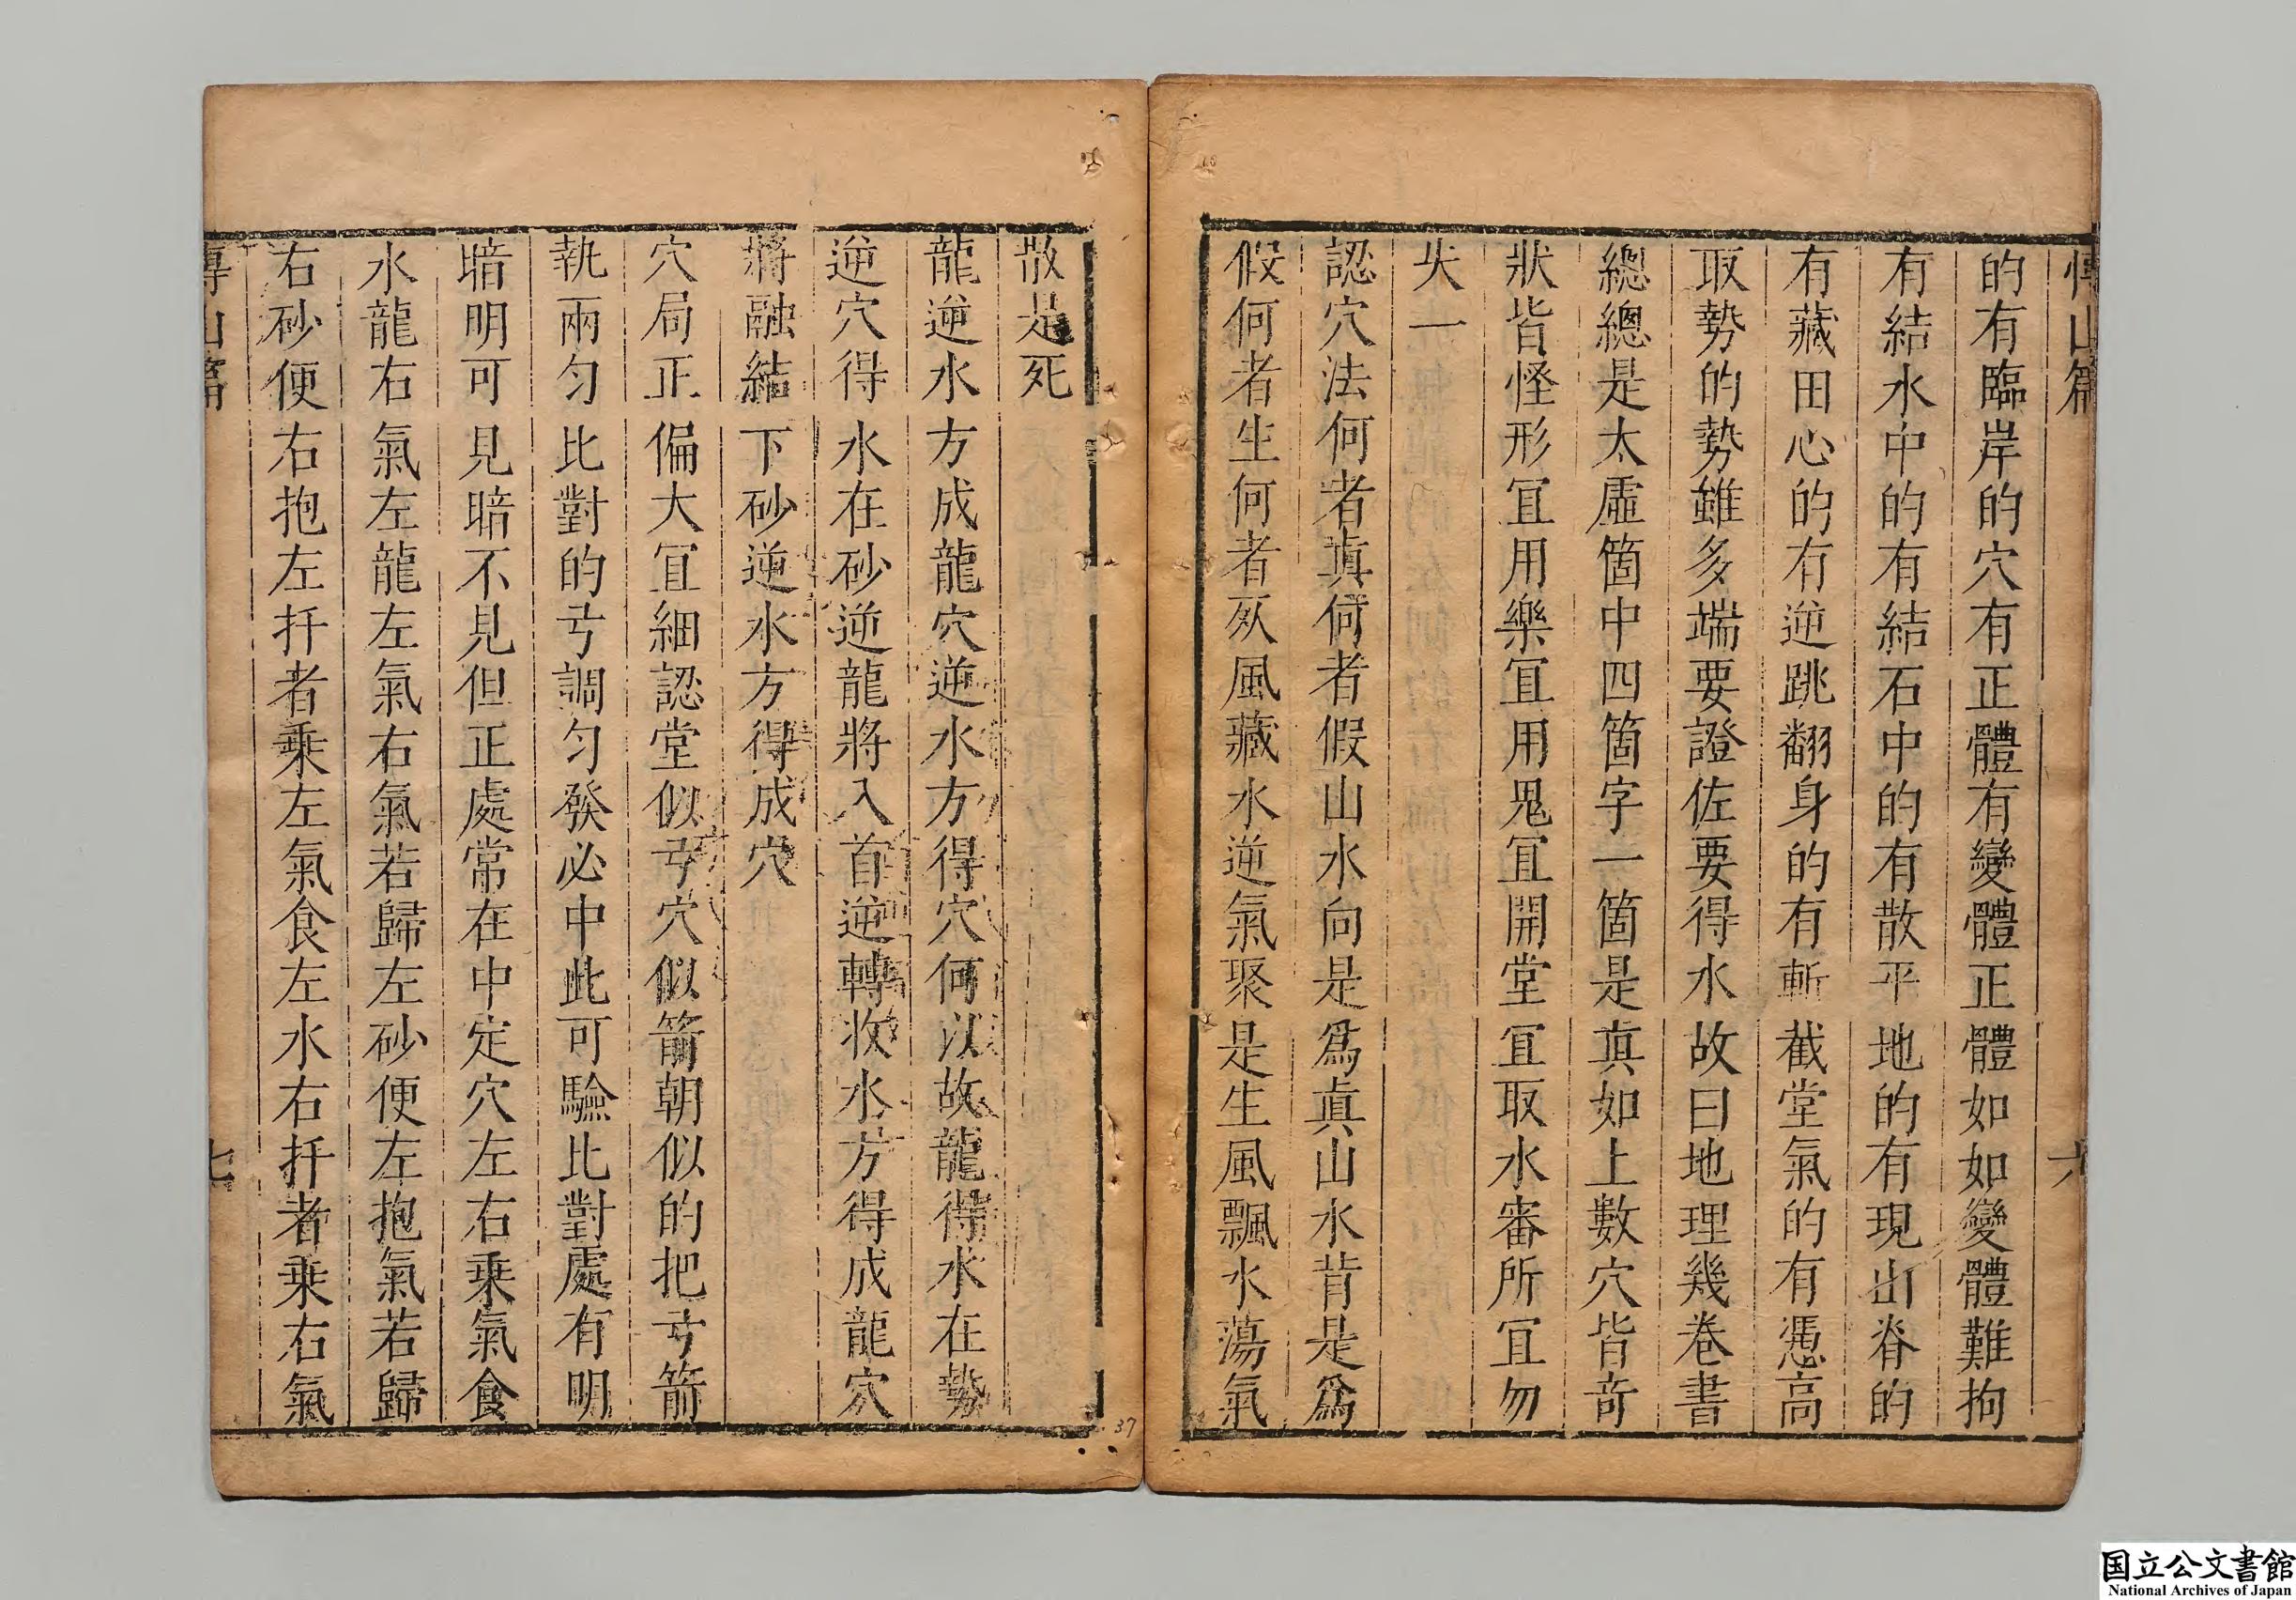 博山篇 六
的有臨岸的穴有正體有變體正體如如變體難拘
有結水中的有結石中的有散平地的有現出脊的
有藏田心的有逆跳翻身的有斬截堂氣的有憑高
取勢的勢雖多端要證佐要得水故曰地理幾卷書
總總是太虛箇中四箇字一箇是真如上數穴皆奇
狀皆怪形冝用樂冝用鬼冝開堂冝取水審所冝勿
失一
認穴法何者真何者假山水向是爲真山水背是爲
假何者生何者死風藏水逆氣聚是生風飄水蕩氣
散是死
龍逆水方成龍穴逆水方得穴何以故龍得水在勢
逆穴得水在砂逆龍將入首逆轉收水方得成龍穴
將融結下砂逆水方得成穴
穴局正偏大冝細認堂似弓穴似箭朝似的把弓箭
執兩匀比對的弓調匀發必中此可驗比對處有明
暗明可見暗不見但正處常在中定穴左右乘氣食
水龍右氣左龍左氣右氣若歸左砂便左抱氣若歸
右砂便右抱左扦者乘左氣食左水右扦者乘右氣
博山篇 七
37
国立公文書館
National Archives of Japan